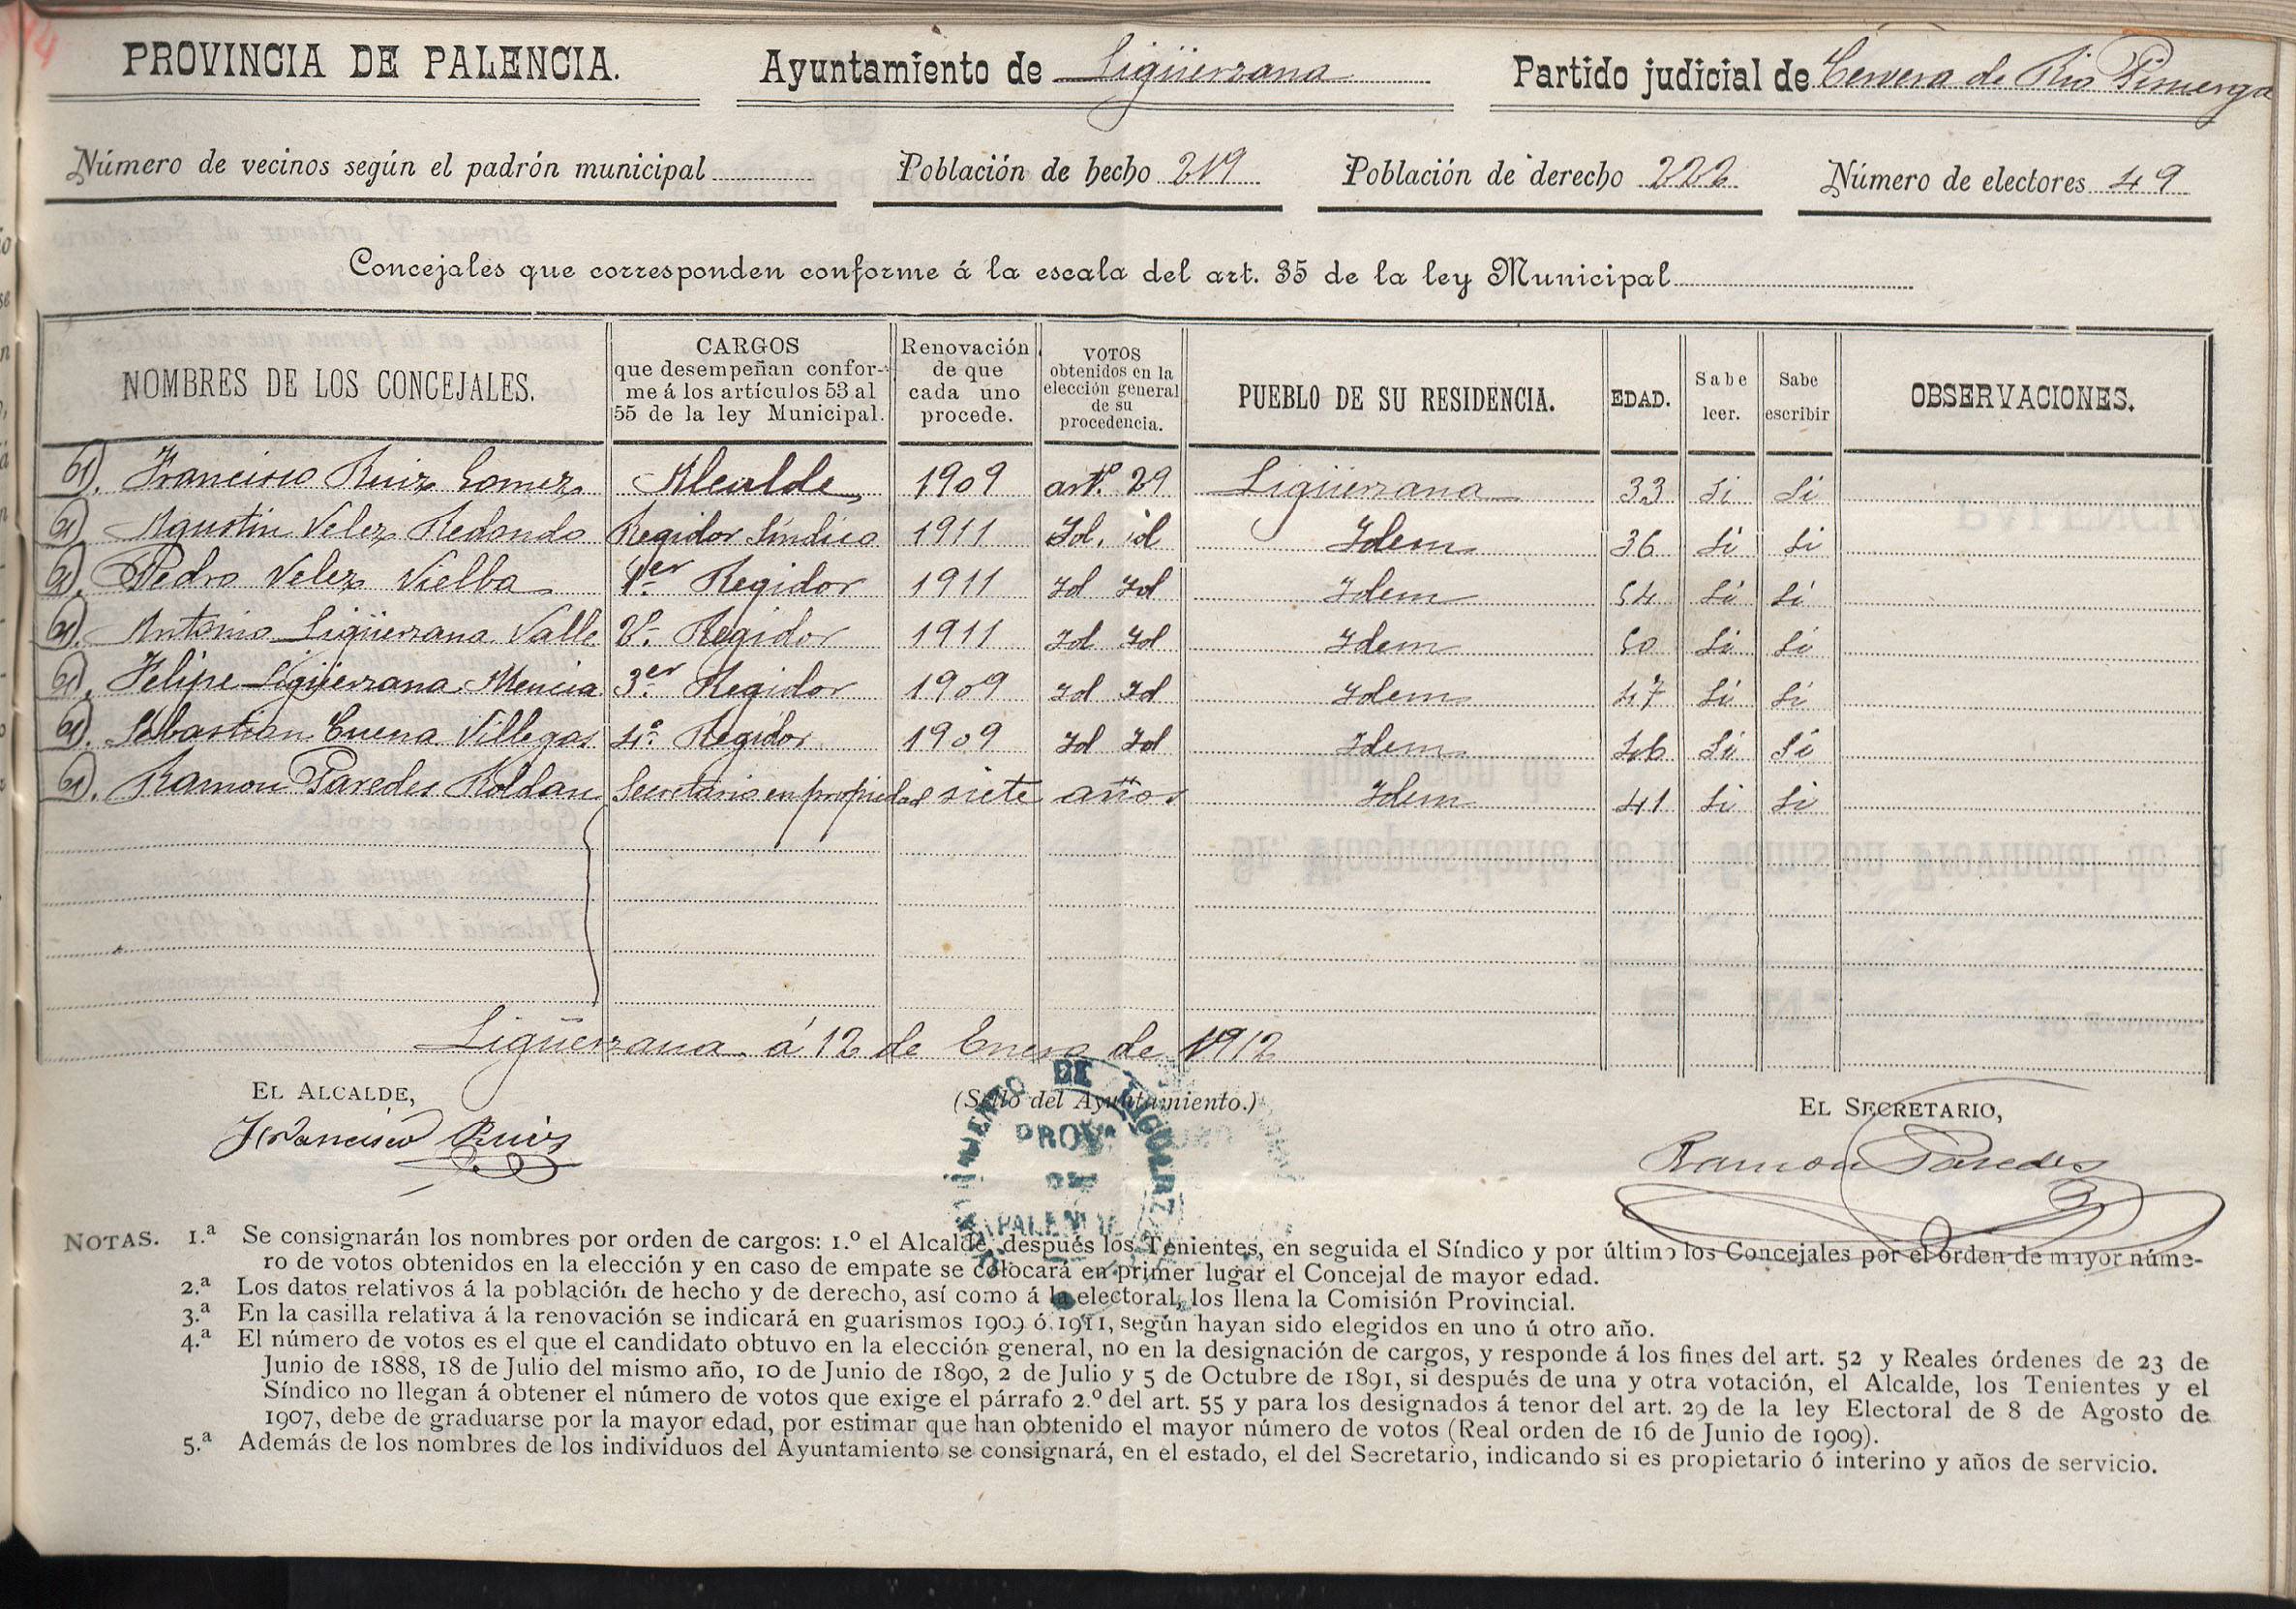 PROVINCIA DE PALENCIA. Ayuntamiento de Ligüerzana Partido judicial de Cervera de Rio Pisuerga
Número de vecinos según el padrón municipal Población de hecho 219 Población de derecho 222 Número de electores 49
Concejales que corresponden conforme á la escala del art. 35 de la ley Municipal
NOMBRES DE LOS CONCEJALES. CARGOS que desempeñan conforme á los artículos 53 al 55 de la ley Municipal. Renovación de que cada uno procede. VOTOS obtenidos en la elección general de su procedencia. PUEBLO DE SU RESIDENCIA. EDAD. Sabe leer. Sabe escribir OBSERVACIONES.
Francisco Ruiz Gomez Alcalde 1909 artº. 29 Ligüerzana 33 Si Si
Agustin Velez Redondo Regidor Síndico 1911 Id. id Idem 36 Si Si
Pedro Velez Vielba 1er Regidor 1911 Id Id Idem 54 Si Si
Antonio Ligüerzana Valle 2º Regidor 1911 Id Id Idem 50 Si Si
Felipe Ligüerzana Mencia 3er Regidor 1909 Id Id Idem 47 Si Si
Sebastian Cuena Villegas 4º Regidor 1909 Id Id Idem 46 Si Si
Ramon Paredes Roldan Secretario en propiedad siete años Idem 41 Si Si
Ligüerzana á 12 de Enero de 1912
EL ALCALDE, (Sello del Ayuntamiento.) EL SECRETARIO,
Francisco Ruiz Ramon Paredes
DE
PROVA
DE
PALENCIA
NOTAS. 1.ª Se consignarán los nombres por orden de cargos: 1.º el Alcalde, después los Tenientes, en seguida el Síndico y por último los Concejales por el orden de mayor núme-
ro de votos obtenidos en la elección y en caso de empate se colocará en primer lugar el Concejal de mayor edad.
2.ª Los datos relativos á la población de hecho y de derecho, así como á la electoral, los llena la Comisión Provincial.
3.ª En la casilla relativa á la renovación se indicará en guarismos 1909 ó 1911, según hayan sido elegidos en uno ú otro año.
4.ª El número de votos es el que el candidato obtuvo en la elección general, no en la designación de cargos, y responde á los fines del art. 52 y Reales órdenes de 23 de
Junio de 1888, 18 de Julio del mismo año, 10 de Junio de 1890, 2 de Julio y 5 de Octubre de 1891, si después de una y otra votación, el Alcalde, los Tenientes y el
Síndico no llegan á obtener el número de votos que exige el párrafo 2.º del art. 55 y para los designados á tenor del art. 29 de la ley Electoral de 8 de Agosto de
1907, debe de graduarse por la mayor edad, por estimar que han obtenido el mayor número de votos (Real orden de 16 de Junio de 1909).
5.ª Además de los nombres de los individuos del Ayuntamiento se consignará, en el estado, el del Secretario, indicando si es propietario ó interino y años de servicio.